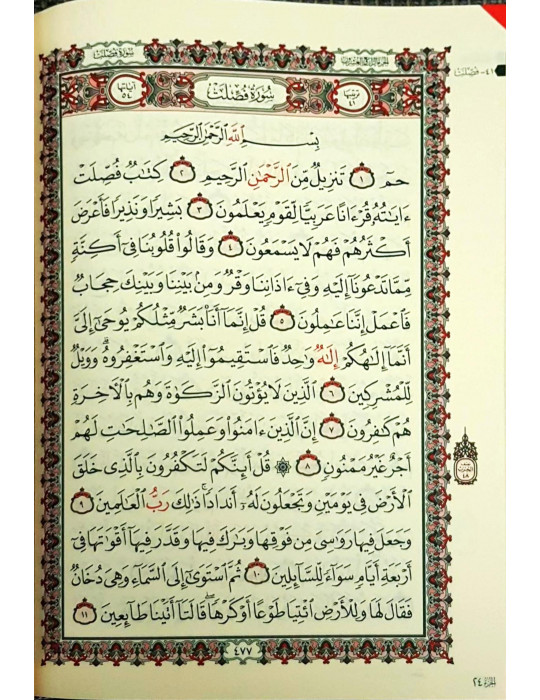 سورة فصلت
٤١- فصلت
ترتيبها ٤١
سُورَةُ فُصِّلَتْ
آياتها ٥٤
بِسْمِ اللَّهِ الرَّحْمَٰنِ الرَّحِيمِ
حمٓ ١ تَنزِيلٌ مِّنَ الرَّحْمَٰنِ الرَّحِيمِ ٢ كِتَابٌ فُصِّلَتْ
ءَايَاتُهُ قُرْءَانًا عَرَبِيًّا لِّقَوْمٍ يَعْلَمُونَ ٣ بَشِيرًا وَنَذِيرًا فَأَعْرَضَ
أَكْثَرُهُمْ فَهُمْ لَا يَسْمَعُونَ ٤ وَقَالُوا قُلُوبُنَا فِي أَكِنَّةٍ
مِّمَّا تَدْعُونَا إِلَيْهِ وَفِي ءَاذَانِنَا وَقْرٌ وَمِنْ بَيْنِنَا وَبَيْنِكَ حِجَابٌ
فَاعْمَلْ إِنَّنَا عَامِلُونَ ٥ قُلْ إِنَّمَا أَنَا بَشَرٌ مِّثْلُكُمْ يُوحَىٰ إِلَيَّ
أَنَّمَا إِلَٰهُكُمْ إِلَٰهٌ وَاحِدٌ فَاسْتَقِيمُوا إِلَيْهِ وَاسْتَغْفِرُوهُ ۗ وَوَيْلٌ
لِّلْمُشْرِكِينَ ٦ الَّذِينَ لَا يُؤْتُونَ الزَّكَوٰةَ وَهُم بِالْآخِرَةِ
هُمْ كَافِرُونَ ٧ إِنَّ الَّذِينَ ءَامَنُوا وَعَمِلُوا الصَّالِحَاتِ لَهُمْ
أَجْرٌ غَيْرُ مَمْنُونٍ ٨ ۞ قُلْ أَئِنَّكُمْ لَتَكْفُرُونَ بِالَّذِي خَلَقَ
الْأَرْضَ فِي يَوْمَيْنِ وَتَجْعَلُونَ لَهُ أَندَادًا ۚ ذَٰلِكَ رَبُّ الْعَالَمِينَ ٩
وَجَعَلَ فِيهَا رَوَاسِيَ مِن فَوْقِهَا وَبَارَكَ فِيهَا وَقَدَّرَ فِيهَا أَقْوَاتَهَا فِي
أَرْبَعَةِ أَيَّامٍ سَوَاءً لِّلسَّائِلِينَ ١٠ ثُمَّ اسْتَوَىٰ إِلَى السَّمَاءِ وَهِيَ دُخَانٌ
فَقَالَ لَهَا وَلِلْأَرْضِ ائْتِيَا طَوْعًا أَوْ كَرْهًا قَالَتَا أَتَيْنَا طَائِعِينَ ١١
٤٧٧
الجزء ٢٤